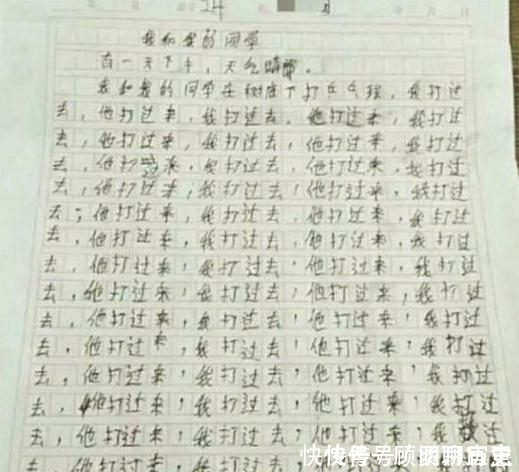 24
我和我的同学
有一天下午,天气晴朗。
我和我的同学在树底下打乒乓球,我打过
去,他打过来,我打过去,他打过来,我打过
去,他打过来,我打过去,他打过来,我打过
去,他打过来,我打过去,他打过来,我打过
去,他打过来,我打过去,他打过来,我打过
去,他打过来,我打过去,他打过来,我打过
去,他打过来,我打过去,他打过来,我打过
去,他打过来,我打过去,他打过来,我打过
去,他打过来,我打过去,他打过来,我打过
去,他打过来,我打过去,他打过来,我打过
去,他打过来,我打过去,他打过来,我打过
去,他打过来,我打过去,他打过来,我打过
去,他打过来,我打过去,他打过来,我打过
去,他打过来,我打过去